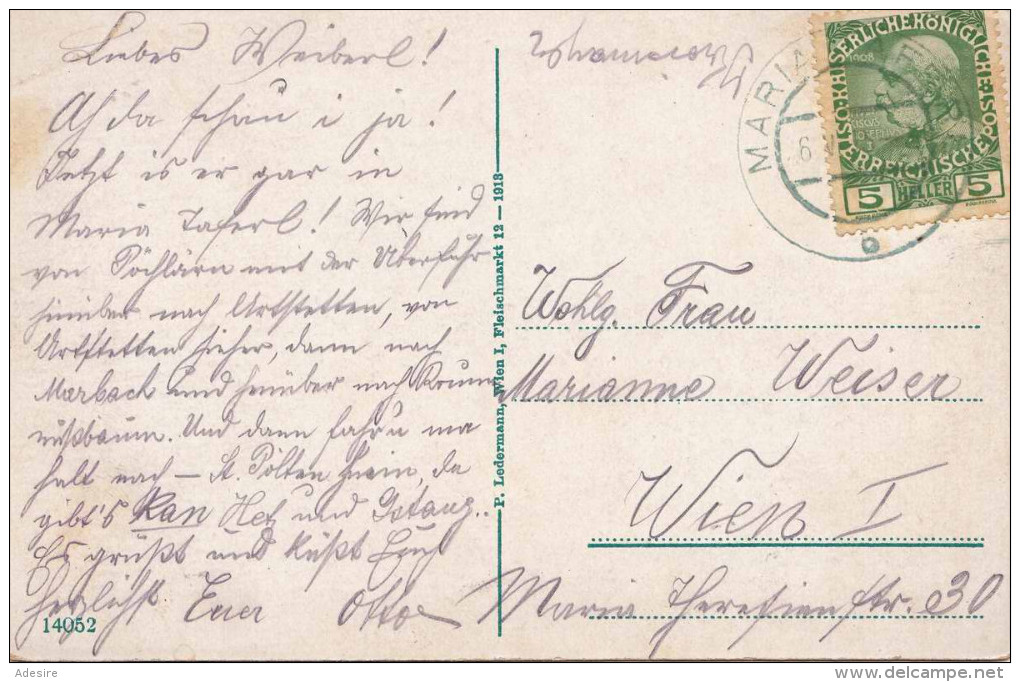 Liebes Weiberl!
Ah da schau i ja!
Jetzt is er gar in
Maria Taferl! Wir sind
von Pöchlarn mit der Überfuhr
hinüber nach Artstetten, von
Artstetten hieher, dann nach
Marbach und hinüber nach Krumm
nußbaum. Und dann fahrn ma
halt nach — St. Pölten hinein, da
gibt's kan Hetz und
Es grüßt und küßt Euch
herzlichst Euer Otto
14052
P. Ledermann, Wien I, Fleischmarkt 12 — 1913
MARIA TAFERL
6
KAISERLICHEKÖNIGLICHE
ÖSTERREICHISCHE POST
1908
5 HELLER 5
Wohlg. Frau
Marianne Weiser
Wien I
Maria Theresien str. 30
Adesire
www.delcampe.net